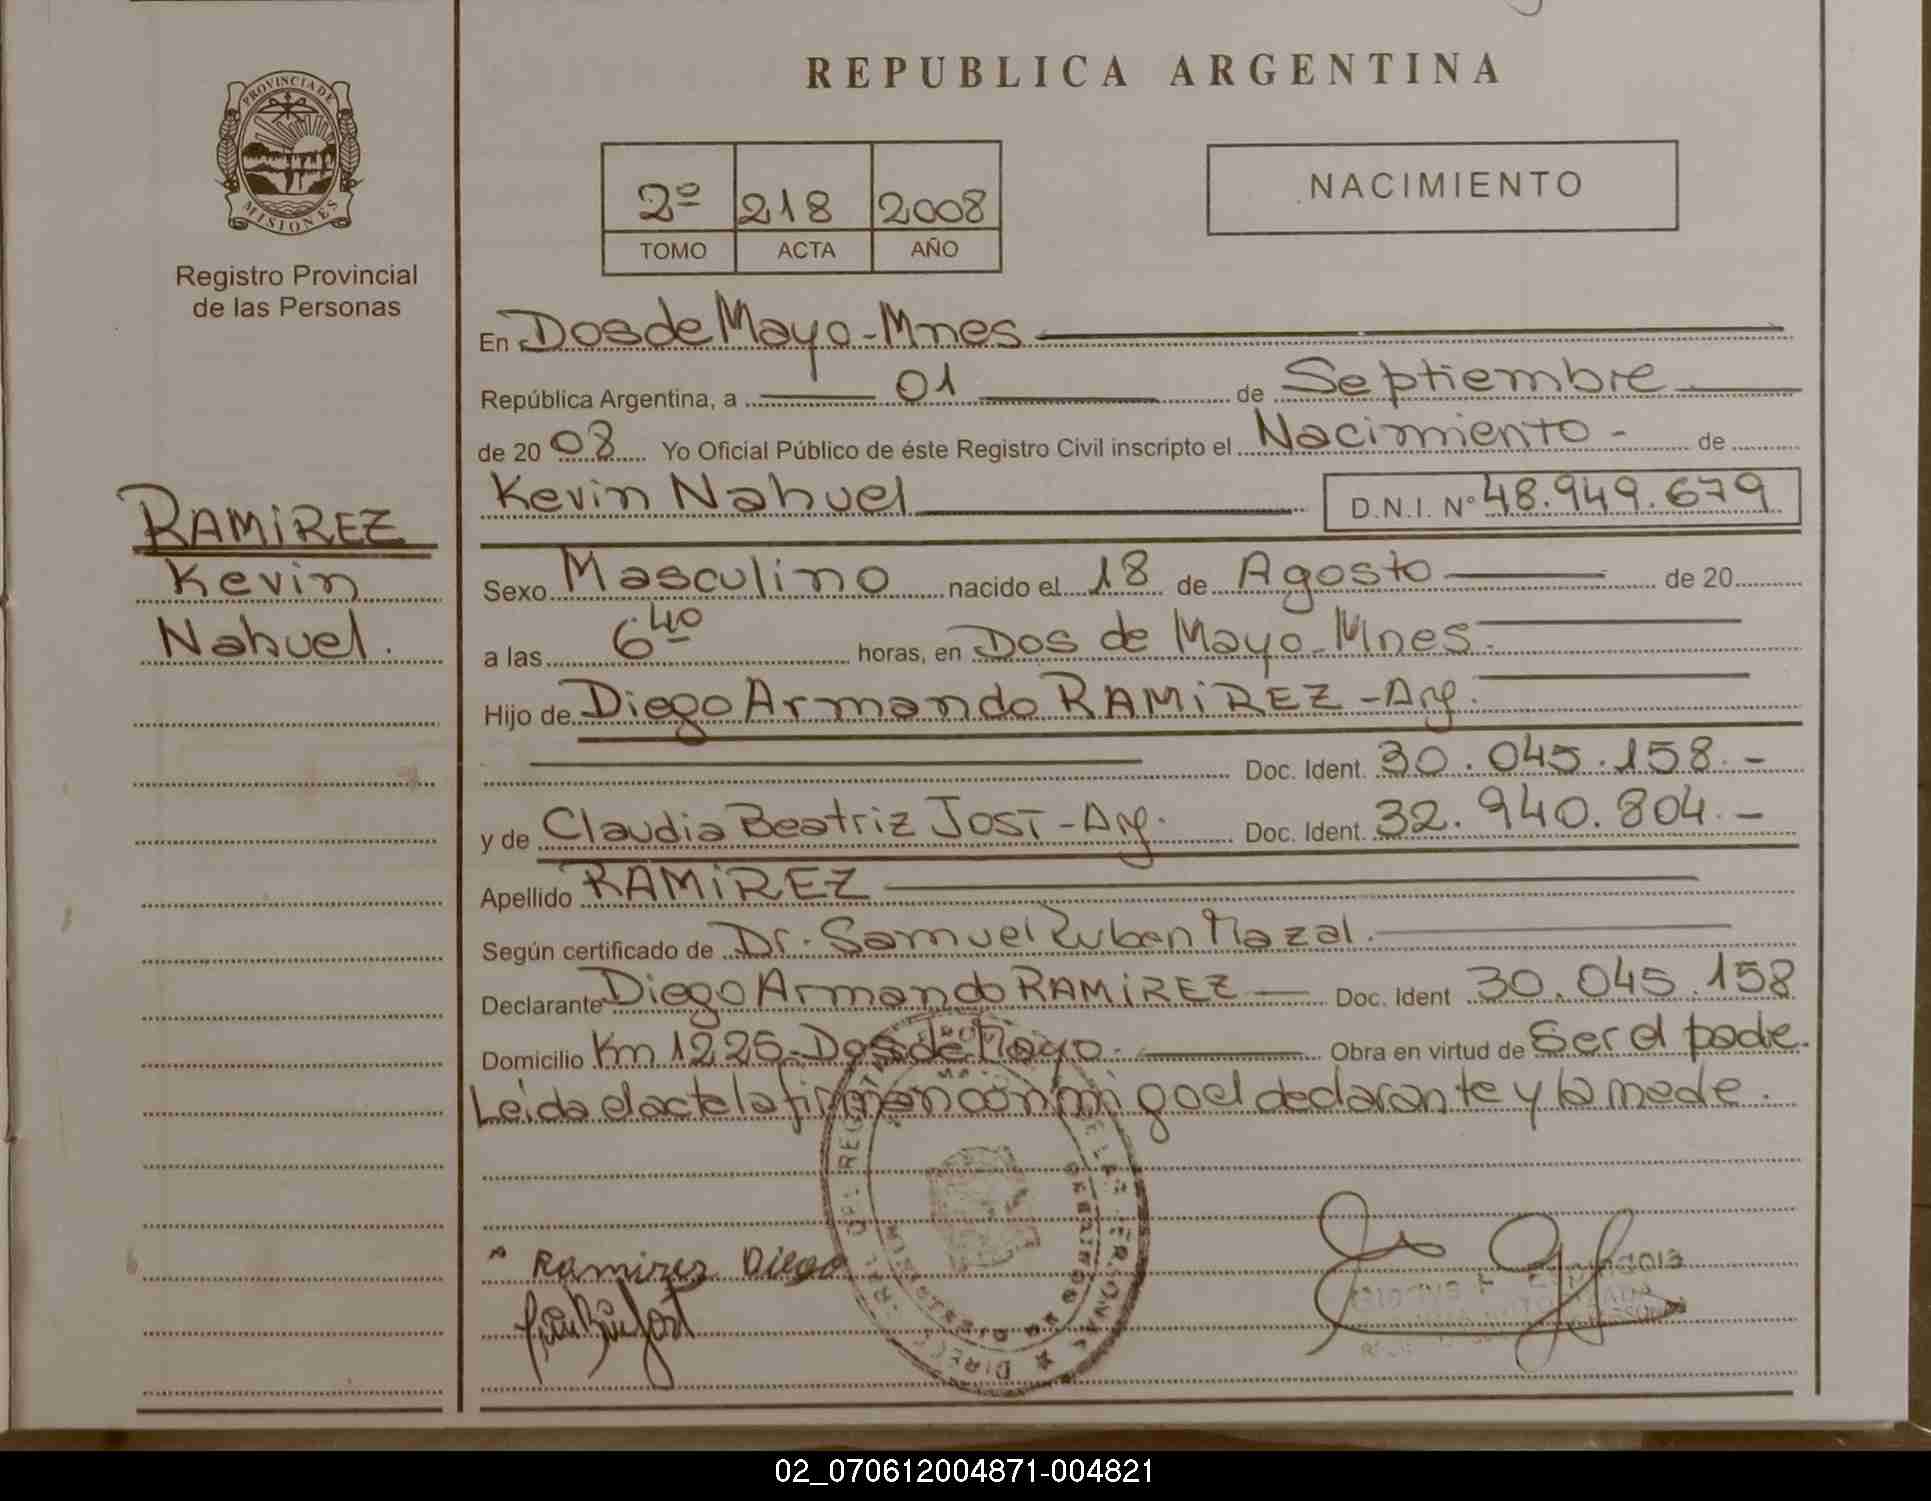 REPUBLICA ARGENTINA
PROVINCIA DE
MISIONES
Registro Provincial
de las Personas
2º 218 2008
TOMO ACTA AÑO
NACIMIENTO
En Dos de Mayo - Mnes
República Argentina, a 01 de Septiembre
de 20 08 Yo Oficial Público de éste Registro Civil inscripto el Nacimiento - de
Kevin Nahuel D.N.I. Nº 48.949.679
RAMIREZ
Kevin
Nahuel.
Sexo Masculino nacido el 18 de Agosto de 20
a las 6 40 horas, en Dos de Mayo - Mnes.
Hijo de Diego Armando RAMIREZ - Arg.
Doc. Ident. 30.045.158.-
y de Claudia Beatriz JOST - Arg. Doc. Ident. 32.940.804.-
Apellido RAMIREZ
Según certificado de Dr. Samuel Ruben Mazal.
Declarante Diego Armando RAMIREZ Doc. Ident 30.045.158
Domicilio Km 1226 - Dos de Mayo. Obra en virtud de Ser el padre.
Leida el acta la firman conmigo el declarante y la madre.
Ramirez Diego
02_070612004871-004821